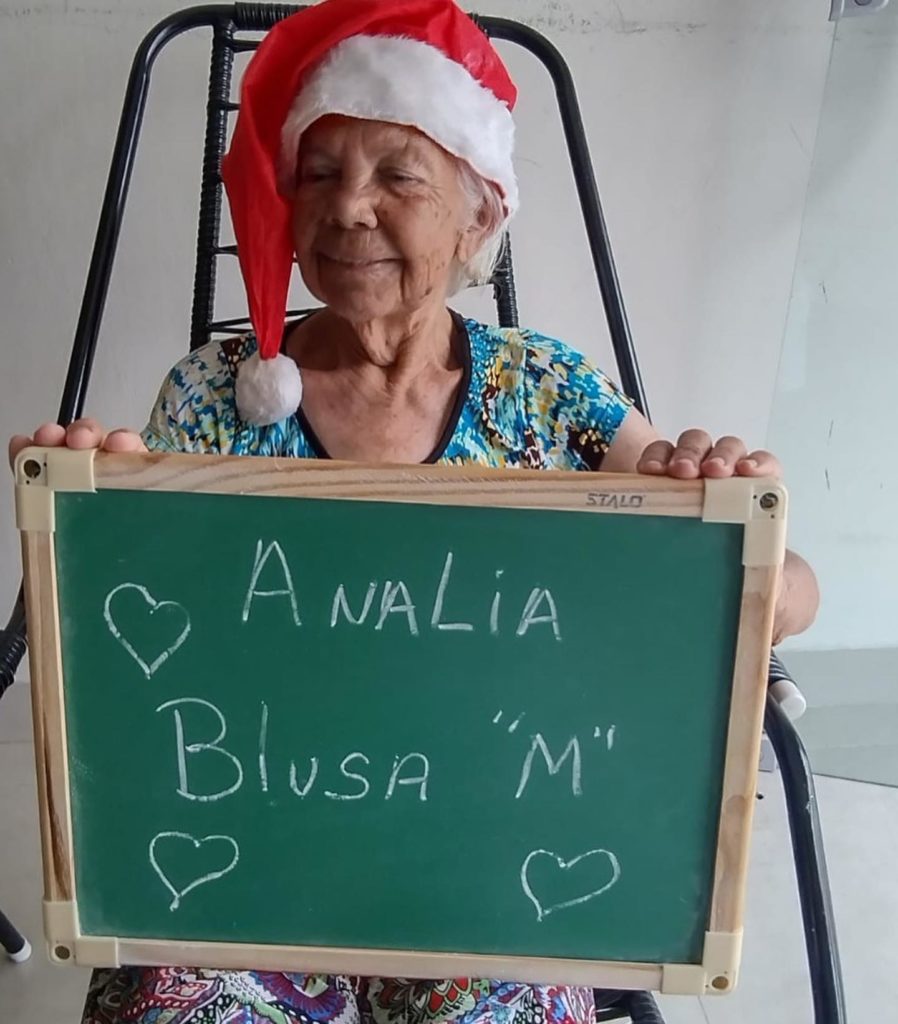 STALO
ANALiA
BlusA "M"